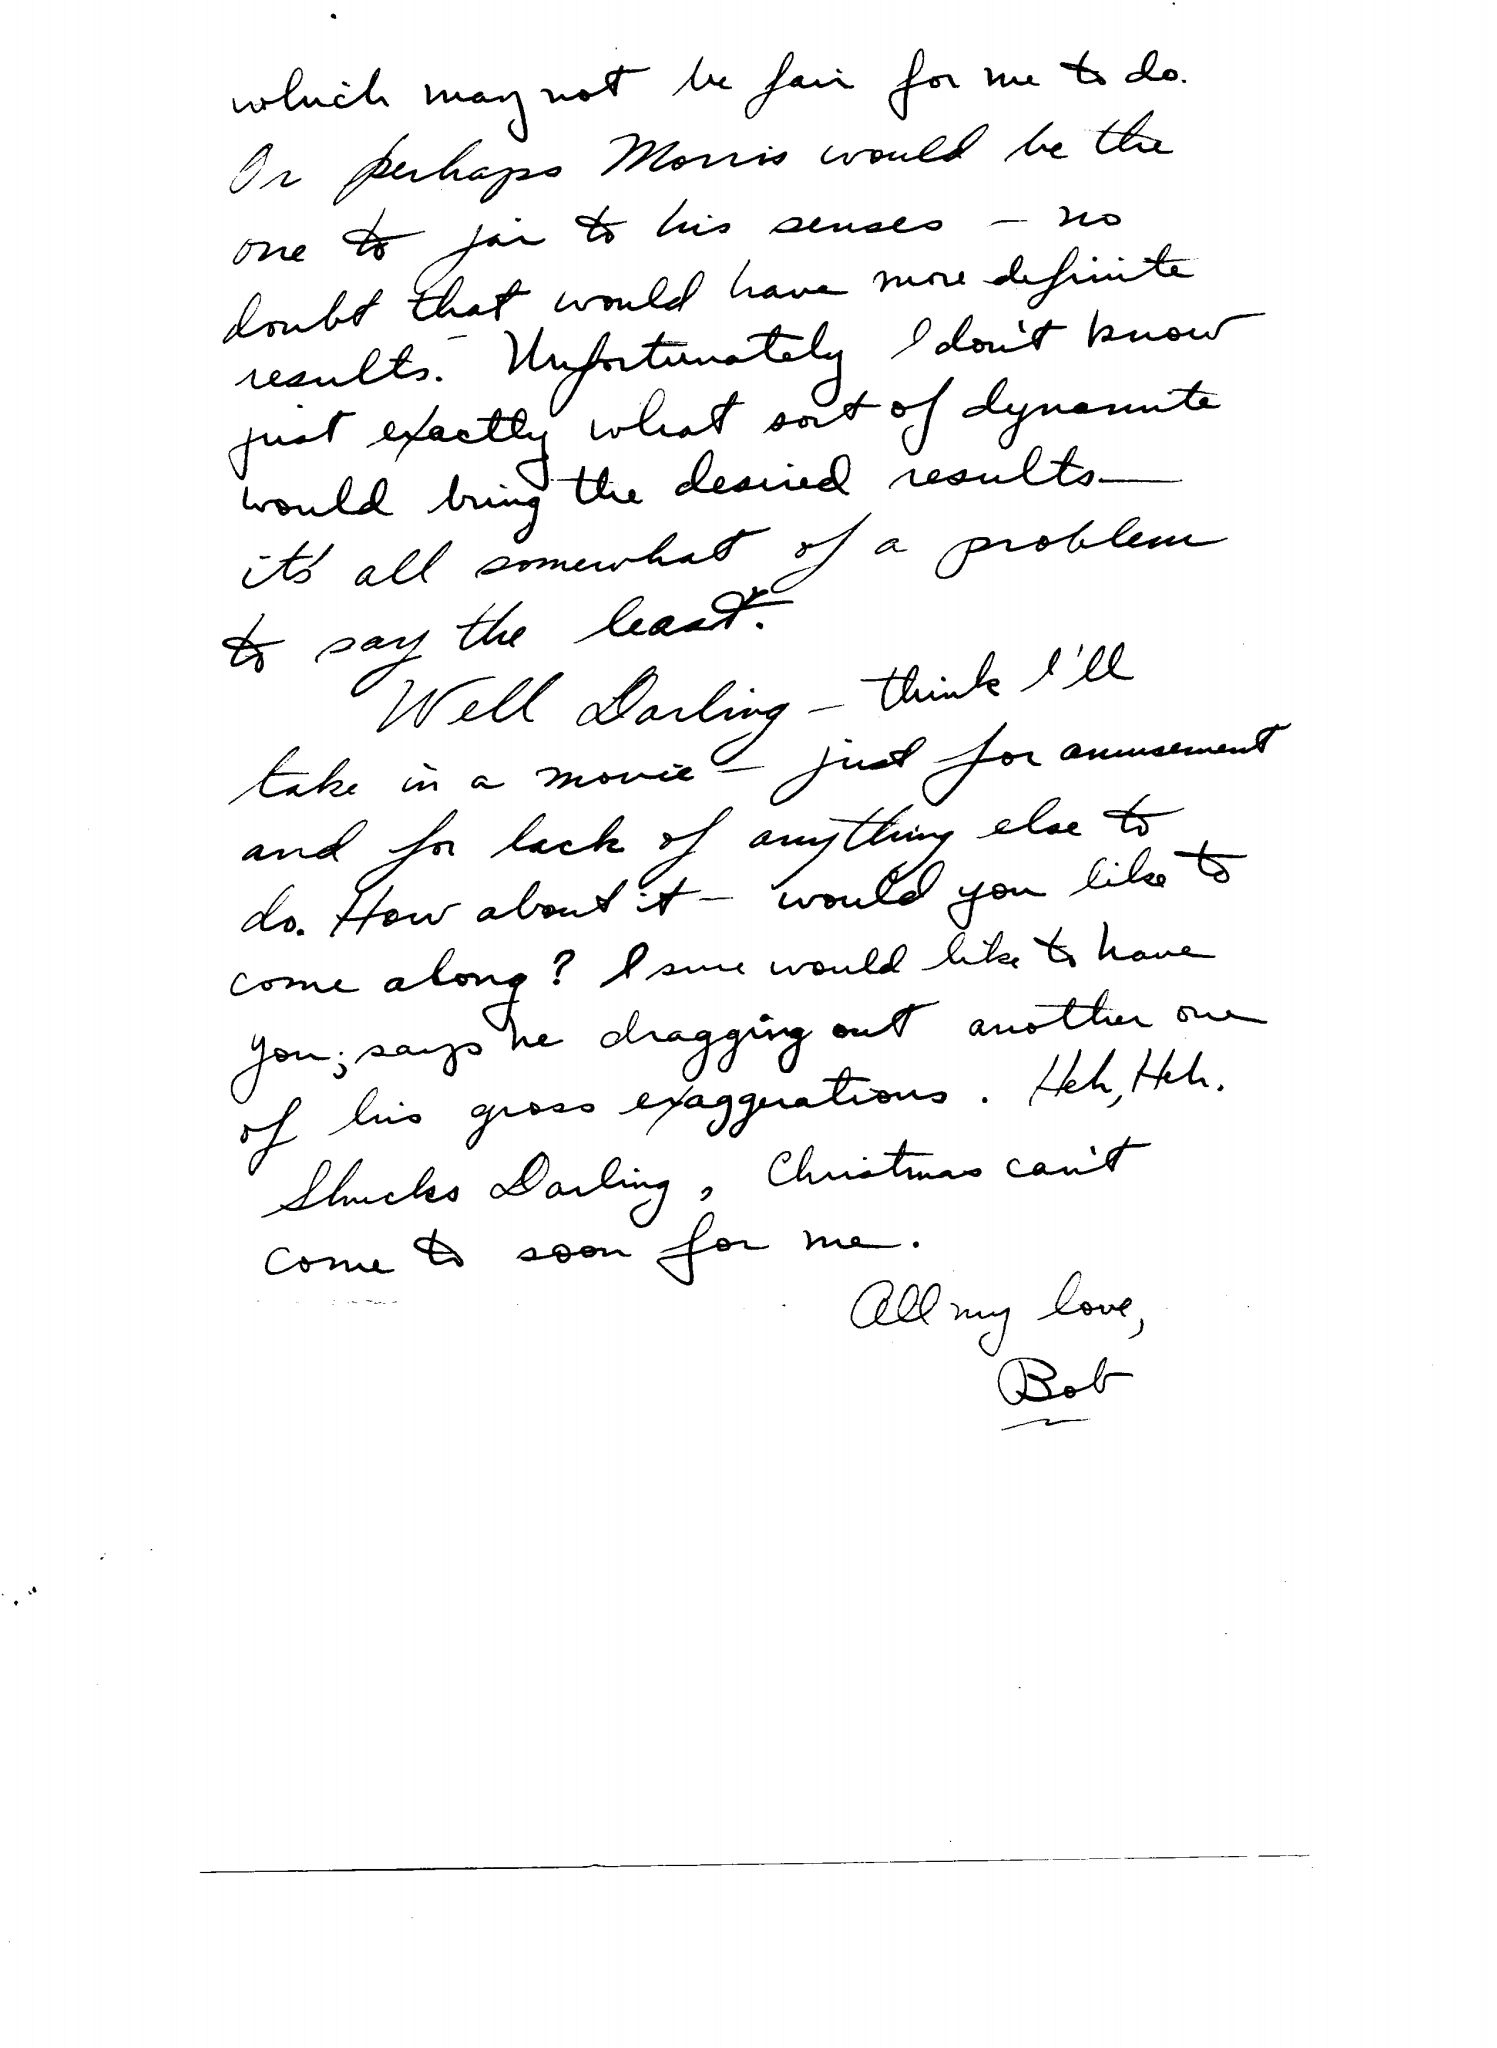 which may not be fair for me to do.
Or perhaps Morris would be the
one to jar to his senses — no
doubt that would have more definite
results. — Unfortunately I don't know
just exactly what sort of dynamite
would bring the desired results —
it's all somewhat of a problem
to say the least.
Well Darling — think I'll
take in a movie — just for amusement
and for lack of anything else to
do. How about it — would you like to
come along? I sure would like to have
you; says he dragging out another one
of his gross exaggerations. Heh, Heh.
Shucks Darling, Christmas can't
come to soon for me.
All my love,
Bob